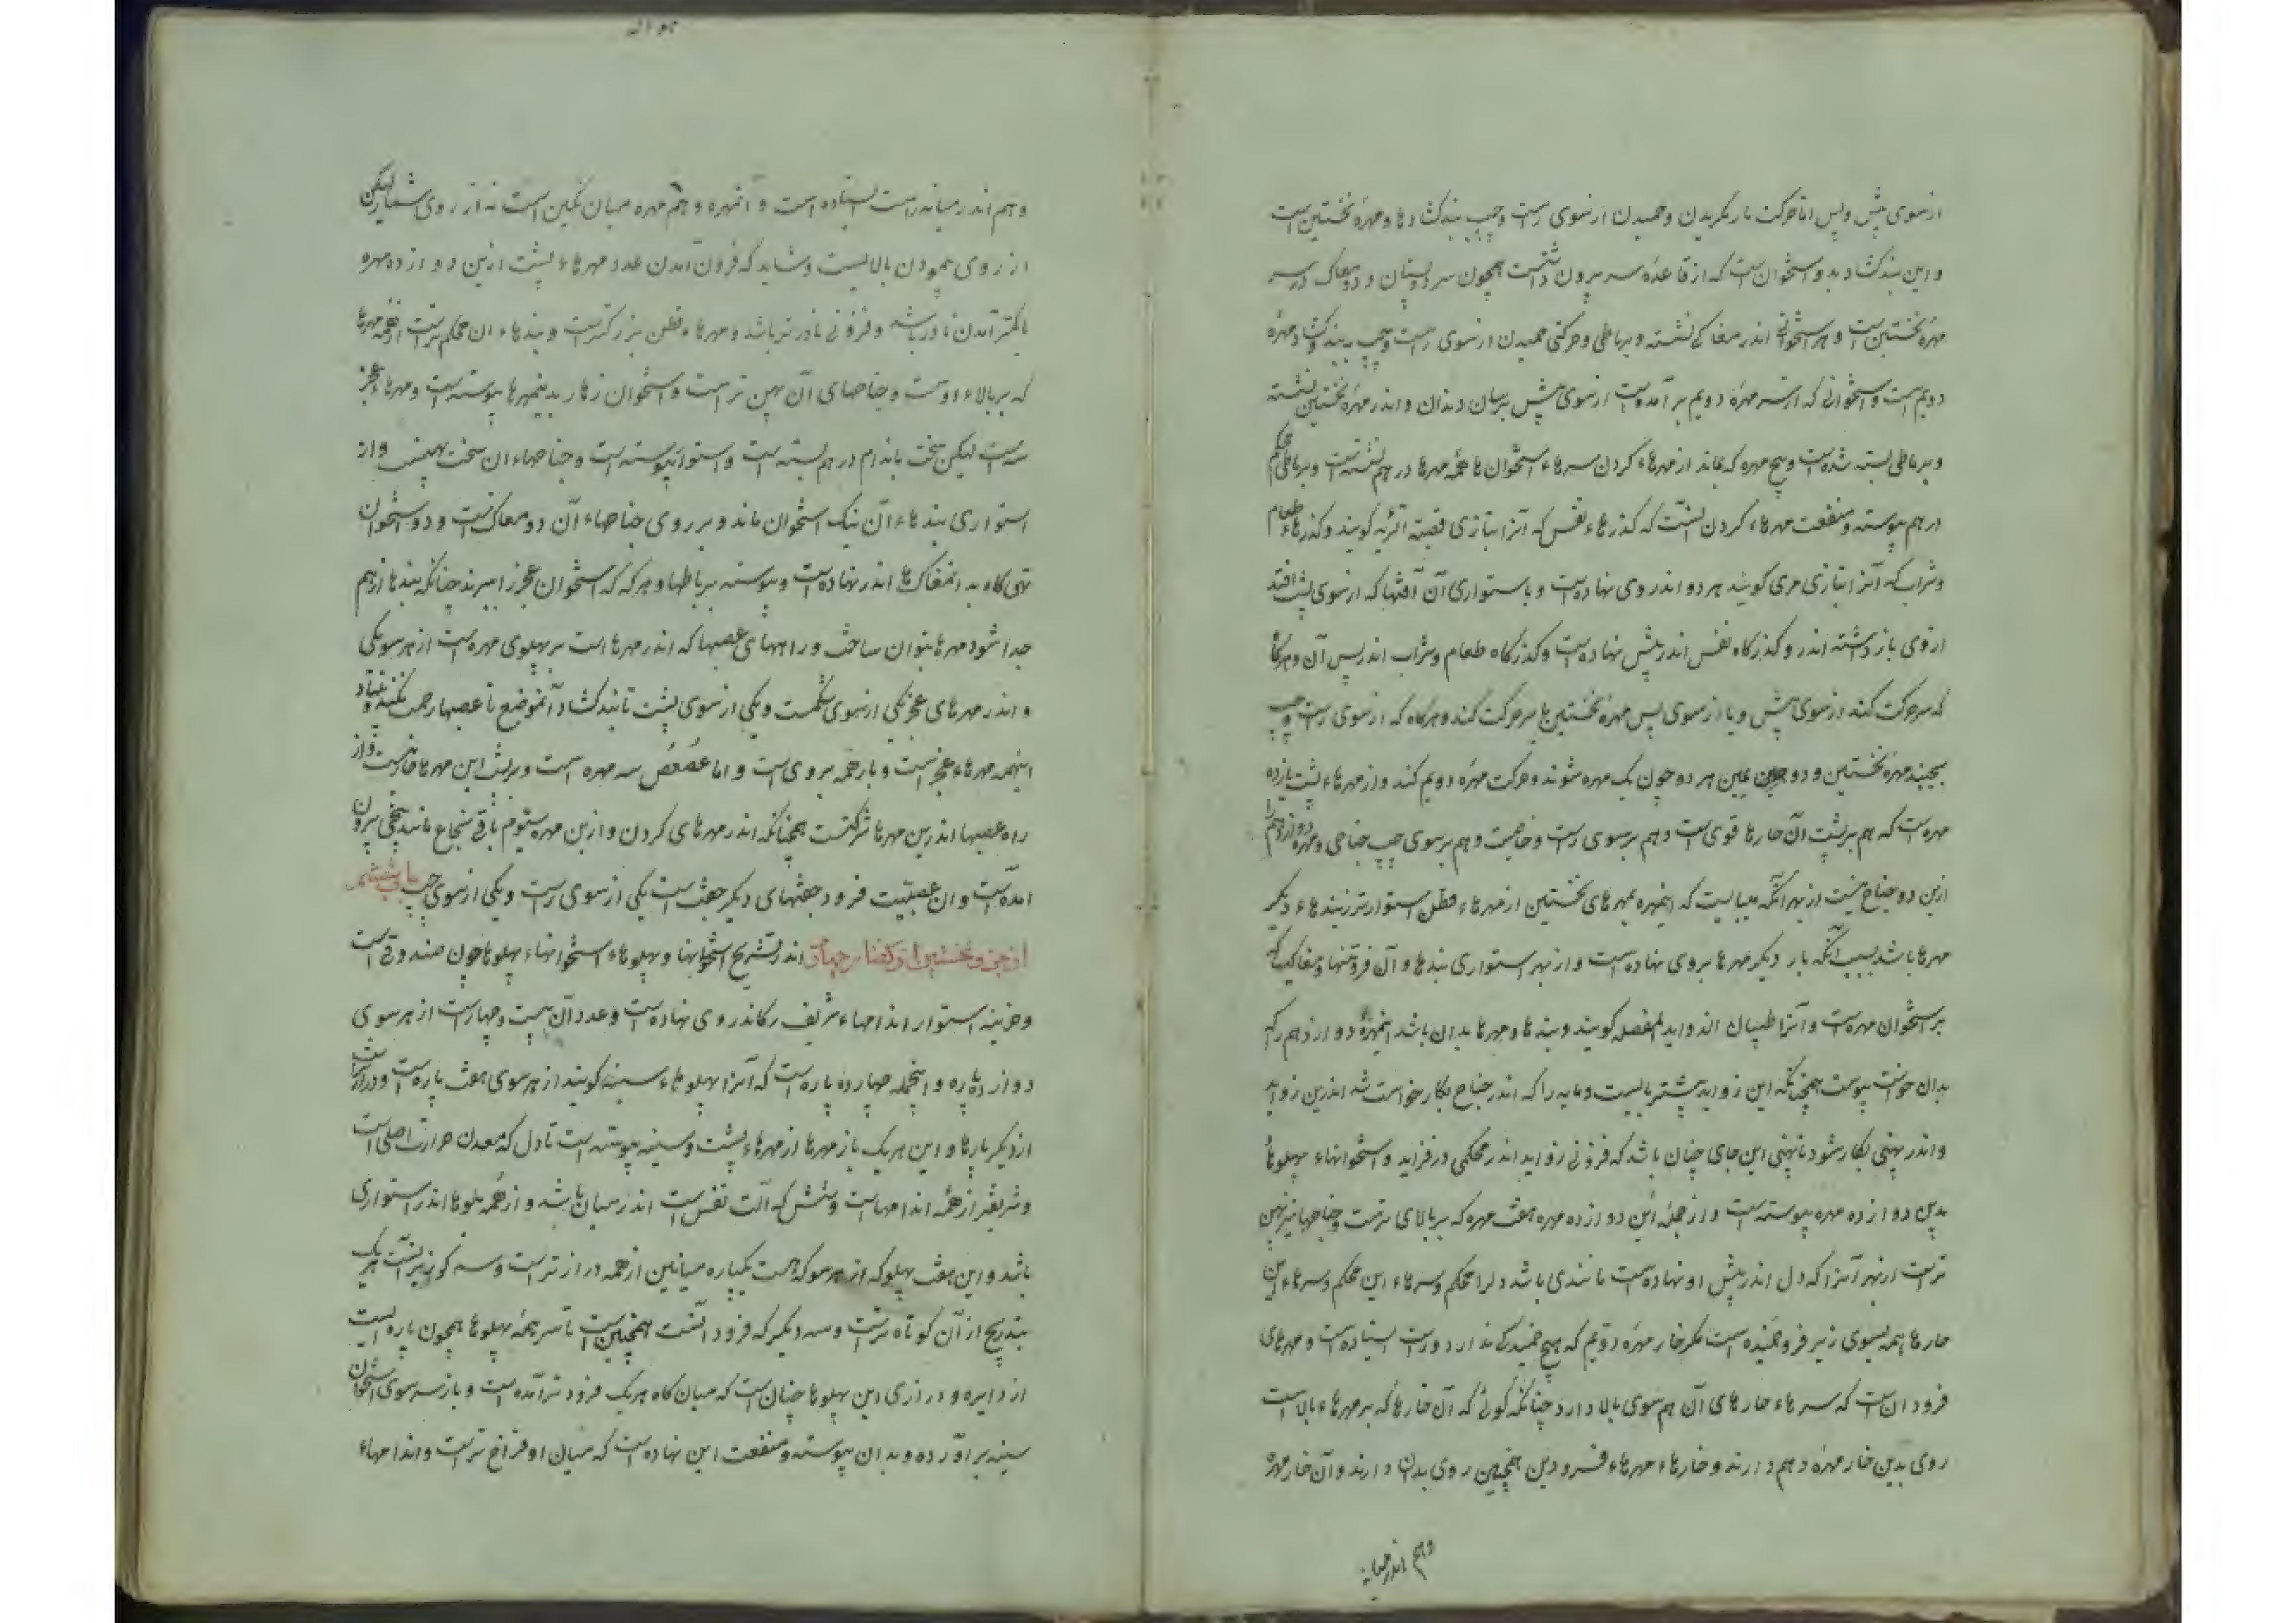 ازسوی پیش وپس اما حرکت باز نگریدن وخمیدن ازسوی راست وچپ بندکشادها ومهره نخستین است
واین بندکشاد بدو استخوان است که از قاعده سر بیرون داشتست همچون سر دو پستان و دو مغاک در سر
مهره نخستین است و هر استخوانی اندر مغاکی نشسته و برباطی وحرکتی خمیدن ازسوی راست وچپ بدین بندکشاد مهره
دویم است و استخوانی که از سر مهره دویم برآمده است ازسوی پیش برسان دندان و اندر مهره نخستین نشسته
وبرباطی بسته شده است و پنج مهره که بماند از مهرهاء کردن سرهاء استخوان ها همه مهرها در هم نشسته است و برباطی محکم
درهم پیوسته ومنفعت مهرهاء کردن آنست که کذرهاء نفس که آنرا بتازی قصبه الریه کویند وکذرهاء طعام
وشراب که آنرا بتازی مری کویند هر دو اندر روی نهاده است و باستواری آن آفتها که ازسوی پشت افتد
ازوی بازداشته اند و کذرکاه نفس اندر پیش نهاده است وکذرکاه طعام وشراب اندر پس آن وهرکا
که سر حرکت کند ازسوی پیش و یا ازسوی پس مهره نخستین با سر حرکت کند و هرکاه که ازسوی راست وچپ
بجنبد مهره نخستین و دویمین هر دو چون یک مهره شوند وحرکت مهره دویم کند واز مهرهاء پشت یازده
مهره است که هم برپشت آن خارها قوی است وهم برسوی راست و هم برسوی چپ جناحی ومهره دوازدهم را
ازین دو جناح نیست از بهر آنکه میبایست که اینمهره بمهرهای نخستین ازمهرهاء قطن استوارتر زبندهاء دیکر
مهرها باشد بسبب آنکه بار دیکر مهرها بروی نهاده است واز بهر استواری بندها و آن فزونیها ومغاکیها که
بر استخوان مهره است وآنرا بتازی زواید المفصله کویند وبندها ومهرها بدان باشد اینمهره دوازدهم را که
بدان پیوست همچنانکه این زواید بیشتر بایست ومایه را که اندر جناح بکار خواست شد اندرین زواید
واندر پهنی بکار شود تا پهنی این جای چنان باشد که فزونی زواید اندر محکمی درفزاید واستخوانهاء پهلوها
بدین دوازده مهره پیوسته است واز جمله این دوازده مهره هفت مهره که بربالای ترست وجناحها نیز پهن
ترست ازبهر آنرا که دل اندر پیش او نهاده است تا بندی باشد دلرا محکم وسرهاء این محکم وسرهاء این
خارها همه بسوی زیر فروخمیده است مکر خار مهره دویم که هیچ خمیدکی ندارد وراست استاده است و مهرهای
فرود آن است که سرهاء خارهای آن هم سوی بالا دارد چنانکه کوئی که آن خارها که بر مهرهاء بالا است
روی بدین خار مهره دهم دارند وخارهاء مهرهاء فرودین همچنین روی بدان دارند وآن خار مهره
وهم اندر میانه
وهم اندر میانه راست استاده است و آنمهره دهم مهره میان نکین است نه از روی شمار لیکن
از روی نمودن بالایست وشاید که فزون آمدن عدد مهرهاء پشت ازین دوازده مهره
یا کمتر آمدن نادر باشد وفزونی نادرتر باشد ومهرهاء قطن بزرکتراست وبندهاء آن محکم تراست ازهمه مهرها
که بربالاء اوست وجناحهای آن پهن تراست واستخوان زهار بدینمهرها پیوسته است ومهرهاء عجز
سه است لیکن سخت باندام درهم بسته است و استوار پیوسته است و جناحهاء آن سخت پهنست واز
استواری بندهاء آن یک استخوان ماند وبر روی جناحهاء آن دو مغاک است ودو استخوان
تهی کاه بدانمغاک ها اندر نهاده است وپیوسته برباطها وهرکه که استخوان عجز را ببرند چنانکه بندها ازهم
جدا شود مهرها بتوان ساخت وراههای عصبها که اندر مهرها است بر پهلوی مهره است از هر سو یکی
واندر مهرهای عجز یکی ازسوی شکمست ویکی ازسوی پشت تا بندکشاد آنموضع تا عصبها زحمت نکند
اینهمه مهرهاء عجز است وبار همه بروی است و اما عصعص سه مهره است وبرپشت این مهرها خار نیست واز
راه عصبها اندرین مهرها شرکتست همچنانکه اندر مهرهای کردن وازین مهره سیوم باقی نخاع مانند بیخی بیرون
آمده است وآن عصبیست فرود جفتهای دیکر جفت است یکی ازسوی راست ویکی ازسوی چپ باب ششم
از جزو نخستین از کفتار چهارم اندر تشریح استخوانها وپهلوهاء استخوانهاء پهلوها چون صندوقی است
وخزینه استوار اندامهاء شریف را که اندر وی نهاده است وعدد آن بیست وچهار است از هر سوی
دوازده پاره وازینجمله چهارده پاره است که آنرا پهلوهاء سینه کویند از هر سوی هفت پاره است ودرازتر است
از دیکر پارها و این هریک باز مهرها از مهرهاء پشت وسینه پیوسته است تا دل که معدن حرارت اصلی است
وشریفتر از همه اندامهاست وشش که آلت نفس است اندر میان باشد واز همه پهلوها اندر استواری
باشد واین هفت پهلو که از هر سو که هست یکپاره میانین ازهمه درازتر است وسه کوزیر آنست هریک
بتدریج از آن کوتاه ترست وسه دیکر که فرود آنست همچنین است تا سر همه پهلوها همچون پاره ایست
از دایره و درازی این پهلوها چنان است که میان کاه هریک فرودتر آمده است وباز سر سوی استخوان
سینه برآورده وبدان پیوسته ومنفعت این نهاده است که میان او فراخ ترست واندامهاء